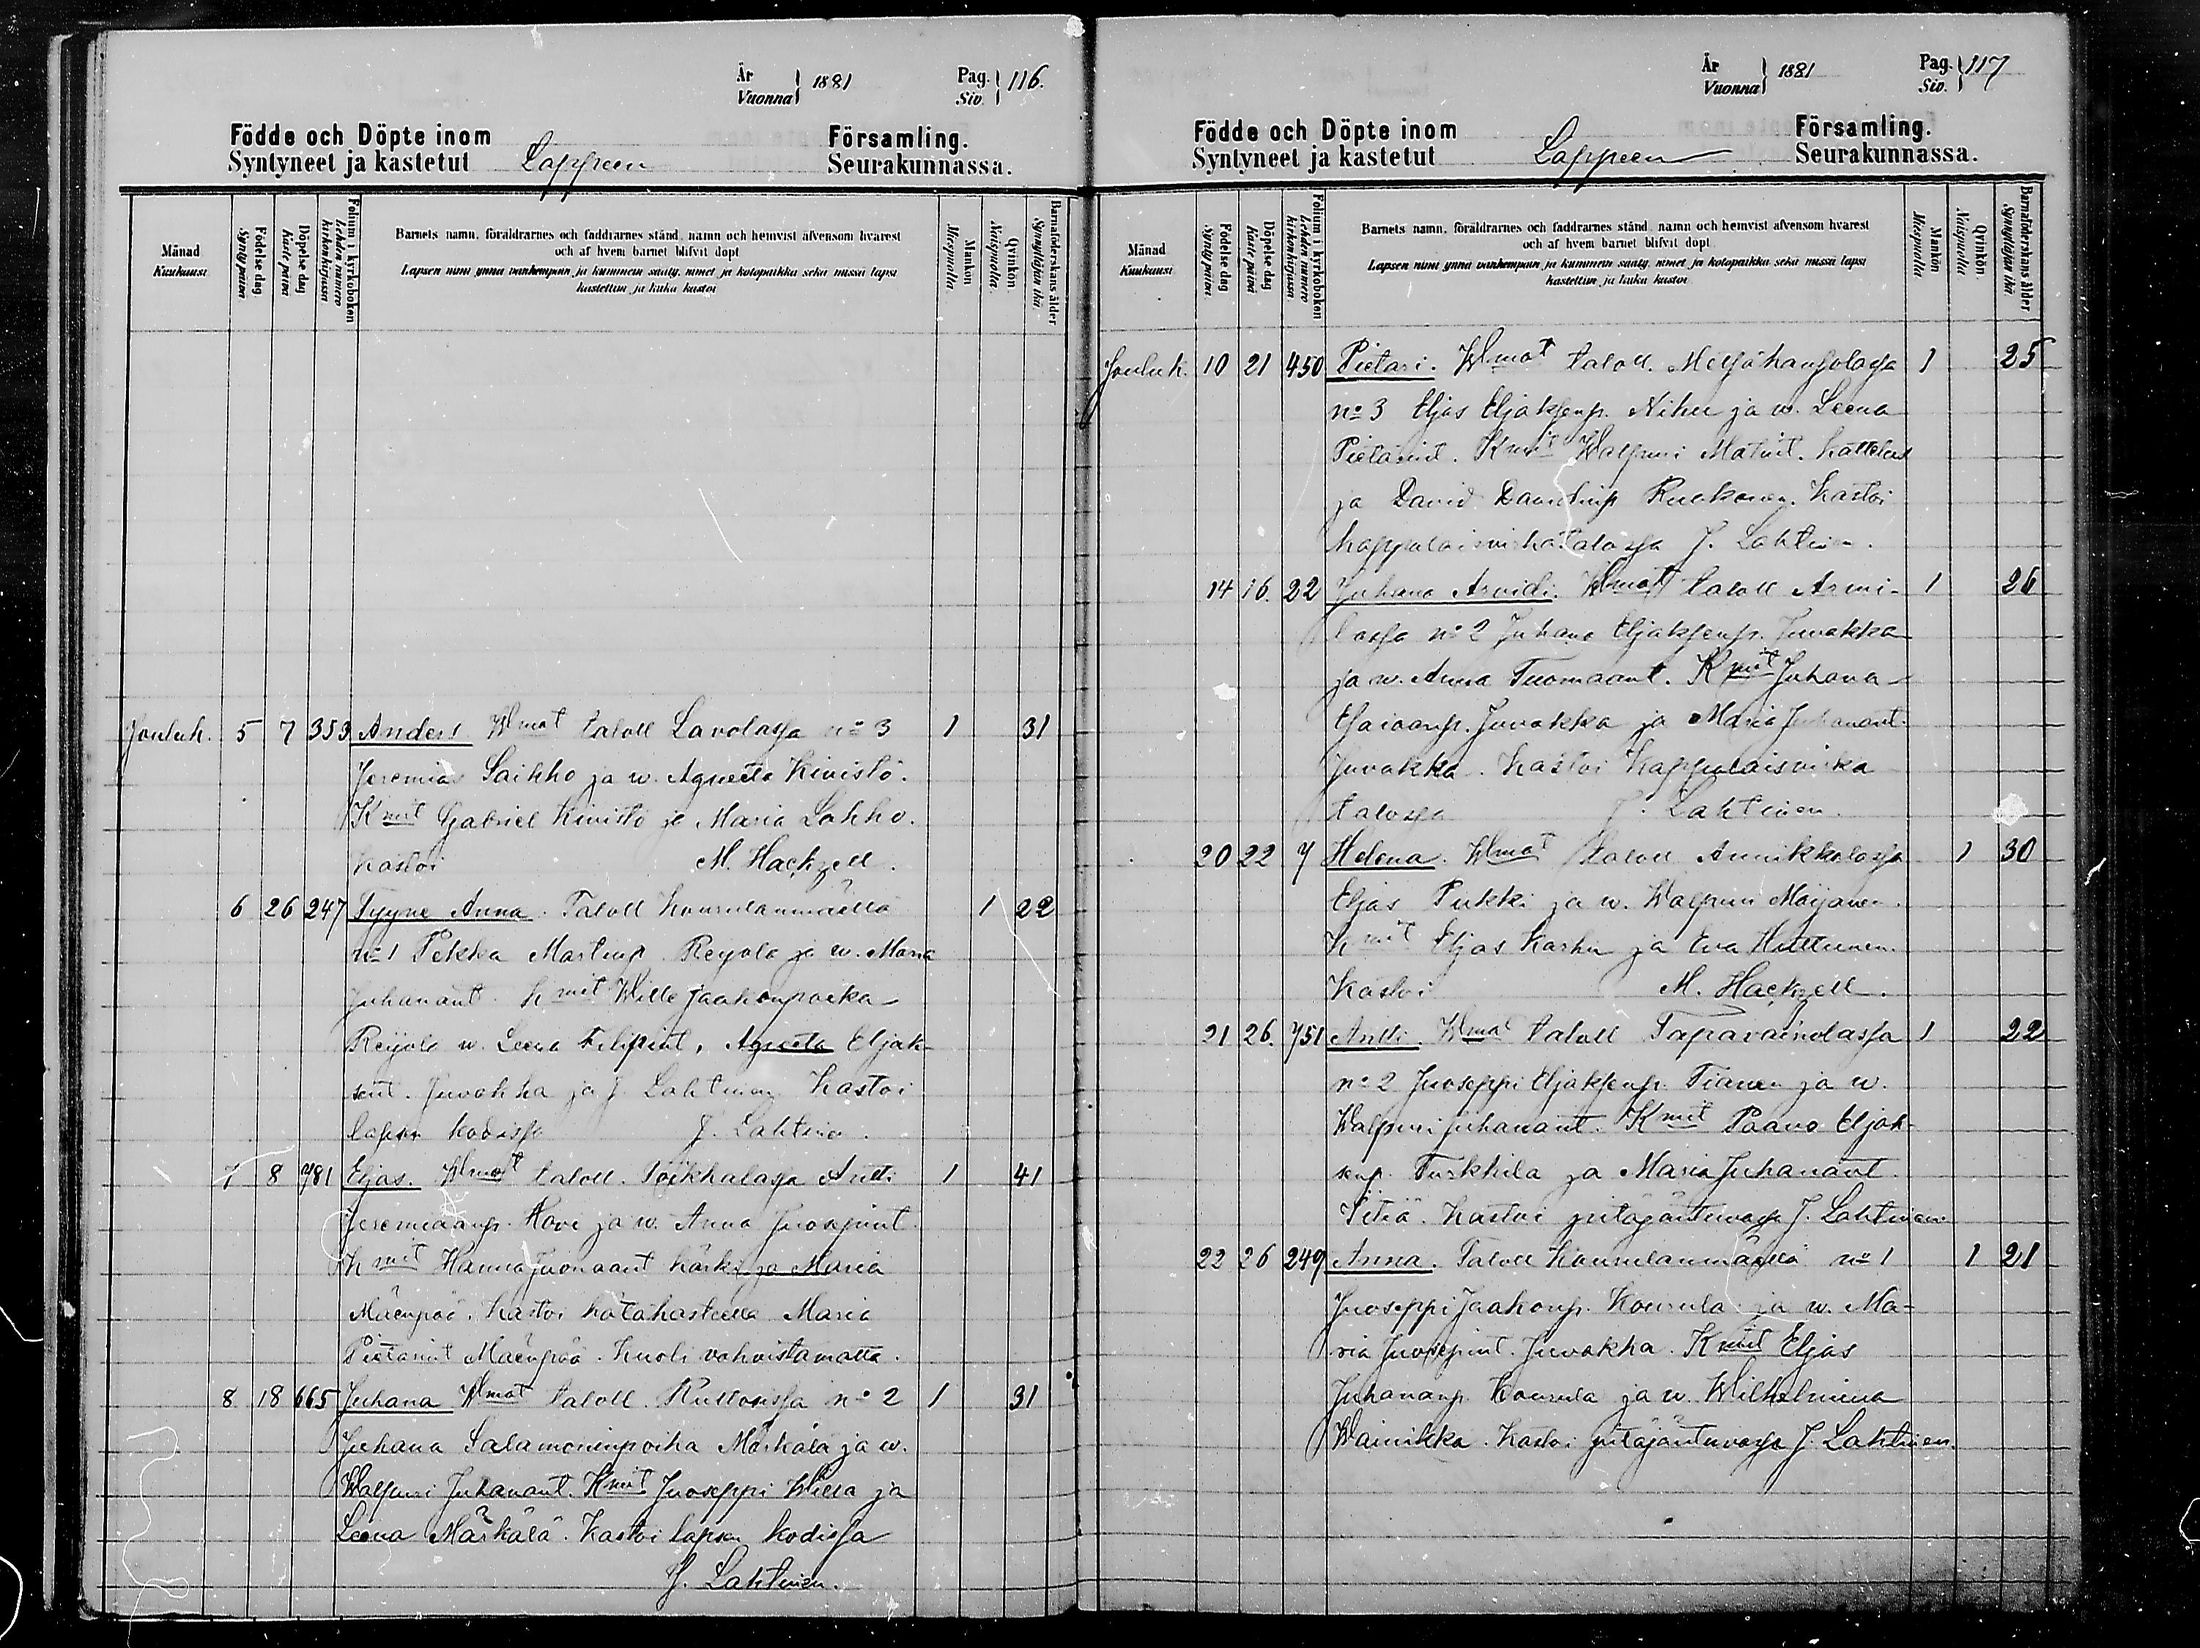 År
Vuonna } 1881 Pag.
Siv. } 116.
Födde och Döpte inom Församling.
Syntyneet ja kastetut Lappeen Seurakunnassa.
Månad
Kuukausi
Födelse dag
Synty päivä
Döpelse dag
Kaste päivä
Folium i kyrkoboken
Lehden numero kirkonkirjassa
Barnets namn, föräldrarnes och faddrarnes stånd, namn och hemvist äfvensom hvarest
och af hvem barnet blifvit döpt
Lapsen nimi ynnä vanhempain ja kummein sääty, nimet ja kotopaikka sekä missä lapsi
kastettiin ja kuka kastoi
Mankön
Miespuolta.
Qvinkön
Naispuolta.
Barnaföderskans ålder
Synnyttäjän ikä.
Jouluk. 5 7 353 Anders Wmat taloll Lavolassa no 3 1 31
Jeremias Saikko ja w. Agneeta Kivistö.
Kmit Gabriel Kivistö ja Maria Lohko.
Kastoi M. Hackzell.
6 26 247 Tyyne Anna. Taloll Kourulanmäellä 1 22
no 1 Pekka Martinp. Reijola ja w. Maria
Juhanant. Kmit Wille Jaakonpoika
Reijola w. Leena Filipint, Agneeta Eljak-
sent. Juvakka ja J. Lahtinen Kastoi
lapsen kodissa J. Lahtinen.
7 8 781 Eljas. Wmat taloll. Töikkälassa Antti 1 41
Jeremiaanp. Hovi ja w. Anna Juosepint
Kmit Hanna Juonaant Kärki ja Maria
Mäenpää. Kastoi hätäkasteella Maria
Pietarint Mäenpää. Kuoli vahvistamatta.
8 18 665 Juhana Wmat taloll. Rullorissa no 2 1 31
Juhana Salamoninpoika Märkälä ja w.
Walpuri Juhanant. Kmit Juoseppi Willa ja
Leena Märkälä. Kastoi lapsen kodissa
J. Lahtinen.
År
Vuonna } 1881 Pag.
Siv. } 117
Födde och Döpte inom Församling.
Syntyneet ja kastetut Lappeen Seurakunnassa.
Månad
Kuukausi
Födelse dag
Synty päivä
Döpelse dag
Kaste päivä
Folium i kyrkoboken
Lehden numero kirkonkirjassa
Barnets namn, föräldrarnes och faddrarnes stånd, namn och hemvist äfvensom hvarest
och af hvem barnet blifvit döpt
Lapsen nimi ynnä vanhempain ja kummein sääty, nimet ja kotopaikka sekä missä lapsi
kastettiin ja kuka kastoi
Mankön
Miespuolta
Qvinkön
Naispuolta
Barnaföderskans ålder
Synnyttäjän ikä
Jouluk. 10 21 450 Pietari. Wmat taloll. Metsähansolassa 1 25
no 3 Eljas Eljaksenp. Nihu ja w. Leena
Pietarint. Kmit Walpuri Matint. Kattelus
ja David Davidinp Ruokonen. Kastoi
kappalaisvirkatalossa J. Lahtinen.
14 16. 22 Juhana Arvidi. Wmat taloll Armi- 1 26
lassa no 2 Juhana Eljaksenp. Juvakka
ja w. Anna Tuomaant. Kmit Juhana
Esaiaanp. Juvakka ja Maria Juhanant
Juvakka. Kastoi Kappalaisvirka
talossa J. Lahtinen.
20 22 7 Helena. Wmat taloll Annikkalassa 1 30
Eljas Pukki ja w. Walpuri Maijanen.
Kmit Eljas Karhu ja Eva Huttunen.
Kastoi M. Hackzell.
21 26. 751 Antti. Wmat taloll Tapavainolassa 1 22
no 2 Juoseppi Eljaksenp. Tianen ja w.
Walpuri Juhanant. Kmit Paavo Eljak-
senp. Turkkila ja Maria Juhanant
Pitiä. Kastoi pitäjäntuvassa J. Lahtinen
22 26 249 Anna. Taloll Kourulanmäellä no 1 1 21
Juoseppi Jaakonp. Kourula ja w. Ma-
ria Juosepint. Juvakka. Kmit Eljas
Juhananp. Kourula ja w. Wilhelmiina
Wainikka. Kastoi pitäjäntuvassa J. Lahtinen.